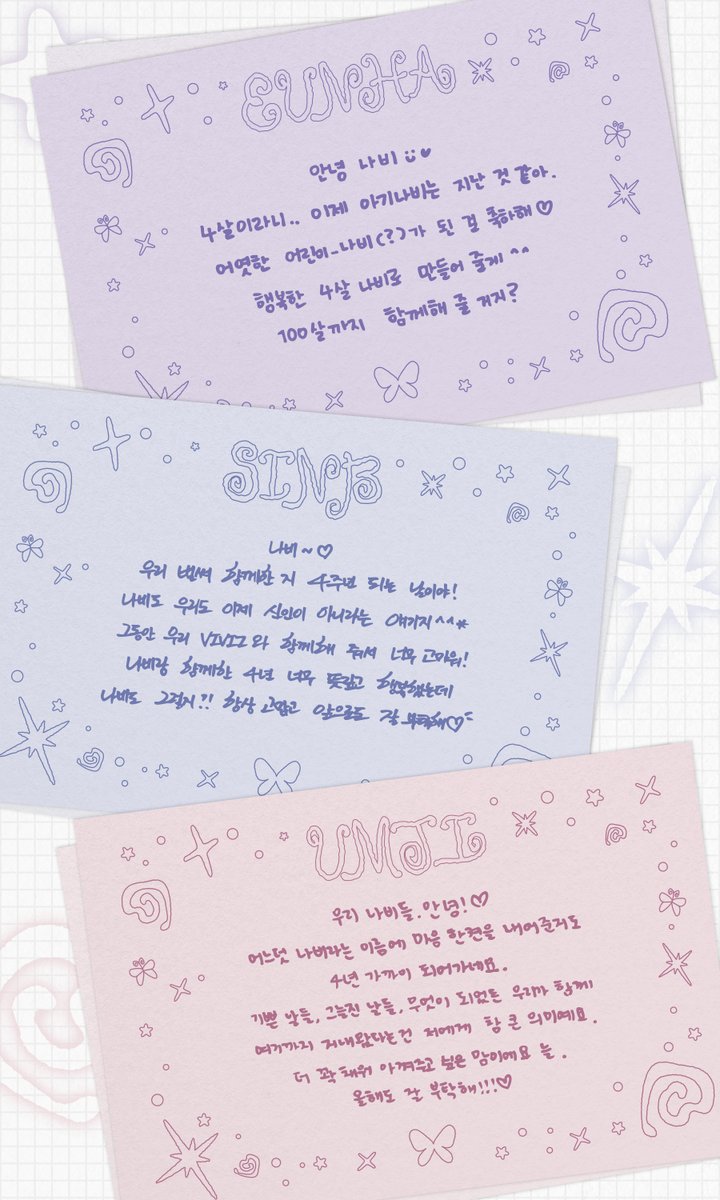 EUNHA
안녕 나비
4살이라니.. 이제 아기나비는 지난 것 같아.
어엿한 어린이-나비(?)가 된 걸 축하해♡
행복한 4살 나비로 만들어 줄게^^
100살까지 함께해 줄 거지?
SINB
나비~♡
우리 벌써 함께한 지 4주년 되는 날이야!
나비도 우리도 이제 신인이 아니라는 얘기지^^*
그동안 우리 VIVIZ와 함께해 줘서 너무 고마워!
나비랑 함께한 4년 너무 뜻깊고 행복했는데
나비도 그렇지?! 항상 고맙고 앞으로도 잘 부탁해♡
UMJI
우리 나비들. 안녕!♡
어느덧 나비라는 이름에 마음 한켠을 내어준지도
4년 가까이 되어가네요.
기쁜 날들, 그늘진 날들, 무엇이 되었든 우리가 함께
여기까지 지내왔다는건 저에게 참 큰 의미예요.
더 꽉 채워 아껴주고 싶은 맘이에요 늘.
올해도 잘 부탁해!!!♡